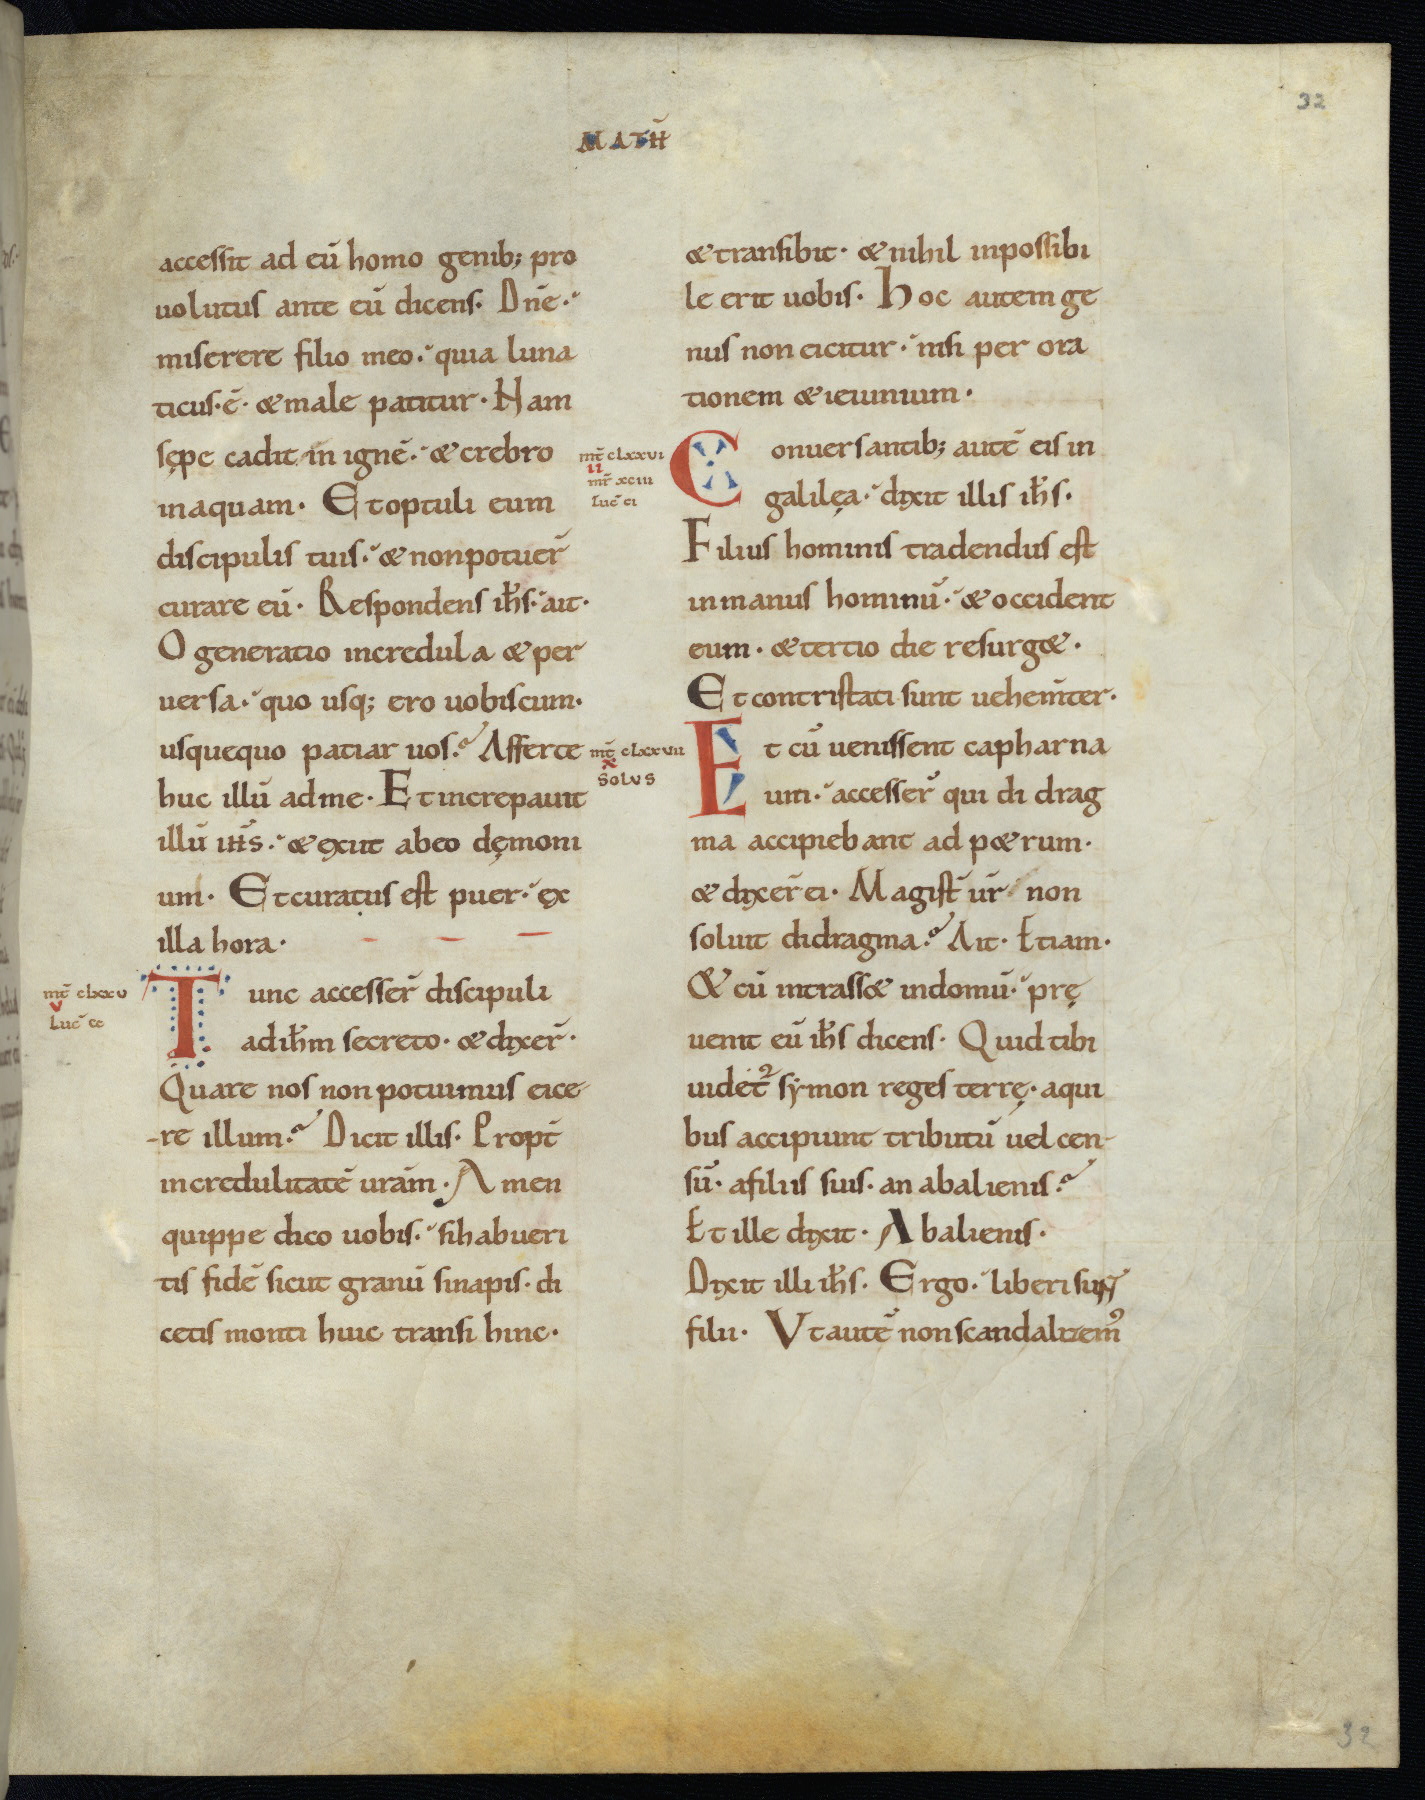 32
MATH̄
accessit ad eū homo genib; pro
uolutus ante eū dicens. Dn̄e.
miserere filio meo. quia luna
ticus.ē. & male patitur. Nam
sępe cadit in ignē. & crebro
in aquam. Et optuli eum
discipulis tuis. & non potuer̄
curare eū. Respondens ih̄s. ait.
O generatio incredula & per
uersa. quo usq; ero uobiscum.
usquequo patiar uos. Afferte
huc illū ad me. Et increpauit
illū ih̄s. & exiit ab eo dęmoni
um. Et curatus est puer. ex
illa hora.
mt̄ clxxv
v
Luc̄ cc
Tunc accesser̄ discipuli
ad ih̄m secreto. & dixer̄.
Quare nos non potuimus eice
-re illum. Dicit illis. Propt̄
incredulitatē uram̄. Amen
quippe dico uobis. si habueri
tis fidē sicut granū sinapis. di
cetis monti huic transi hinc.
& transibit. & nihil inpossibi
le erit uobis. Hoc autem ge
nus non eicitur. nisi per ora
tionem & ieiunium.
mt̄ clxxvi
ii
mr̄ xciii
Luc̄ ci
Conuersantib; autē eis in
galilęa. dixit illis ih̄s.
Filius hominis tradendus est
in manus hominū. & occident
eum. & tertio die resurg&.
Et contristati sunt uehem̄ter.
mt̄ clxxvii
x
SOLVS
Et cū uenissent capharna
um. accesser̄ qui di drag
ma accipiebant ad p&rum.
& dixer̄ ei. Magist̄ ur̄ non
soluit didragma. Ait. Etiam.
& cū intrass& in domū. prę
uenit eū ih̄s dicens. Quid tibi
uidet᷒ symon reges terrę. a qui
bus accipiunt tributū uel cen-
sū. a filiis suis. an ab alienis.
Et ille dixit. Ab alienis.
Dixit illi ih̄s. Ergo. liberi sunt
filii. Vt autē non scandalizem᷒
32